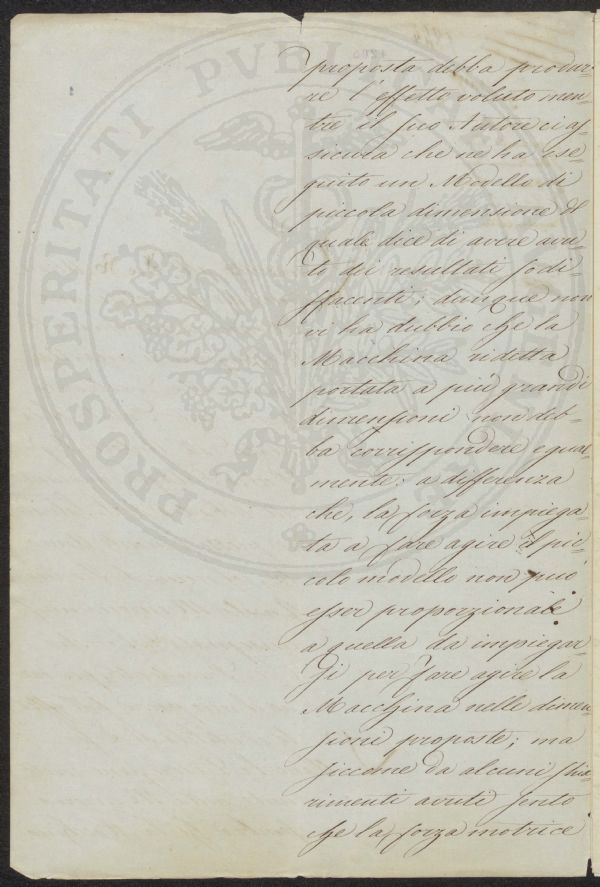 PROSPERITATI PUBL
proposta debba produr=
re l'effetto voluto men=
tre il suo Autore ci as=
sicura che ne ha ese=
guito un Modello di
piccola dimensione del
quale dice di avere avu=
to dei resultati sodi=
sfacenti; dunque non
vi ha dubbio che la
Macchina ridetta
portata a più grandi
dimensioni non deb=
ba corrispondere egual=
mente: a differenza
che, la forza impiega=
ta a fare agire il pic=
colo modello non può
esser proporzionale
a quella da impiegar=
si per fare agire la
Macchina nelle dimen=
sioni proposte; ma
siccome da alcuni schia=
rimenti avuti sento
che la forza motrice